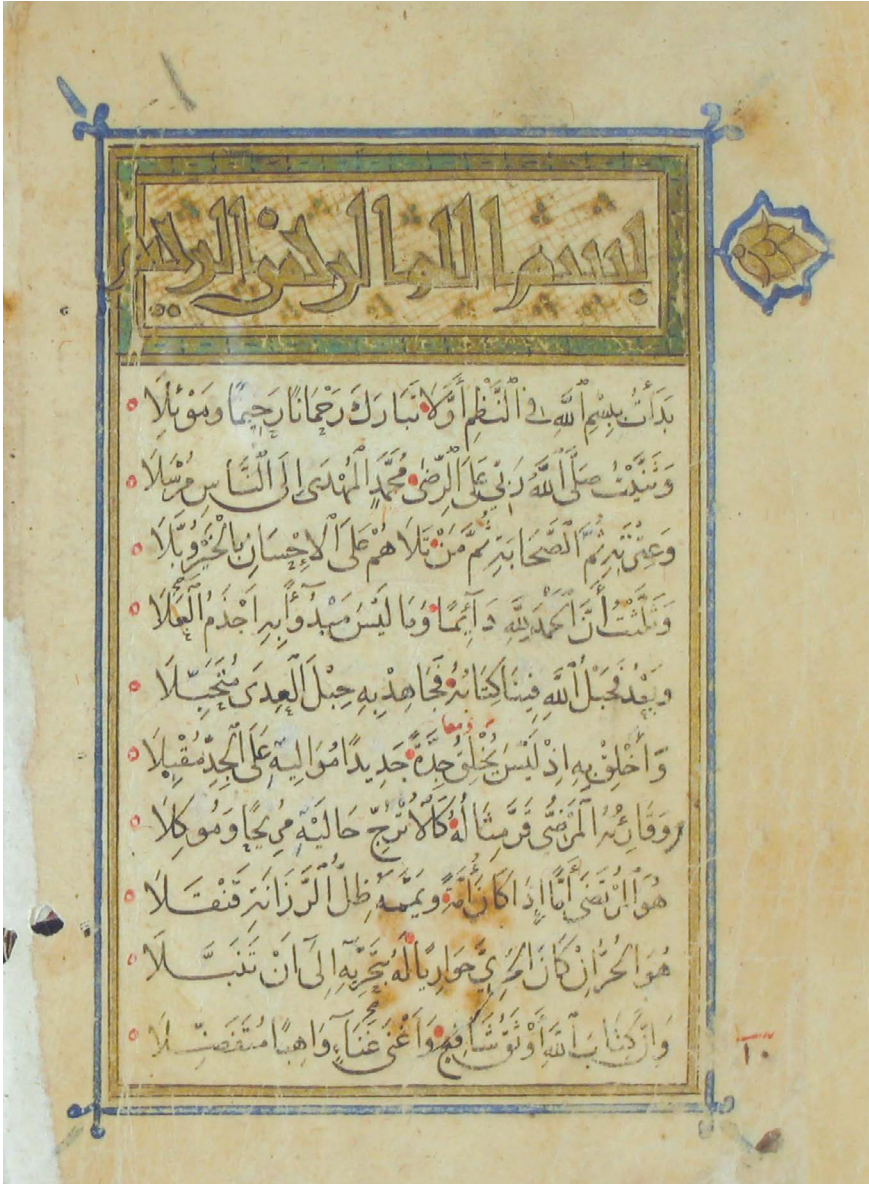 بسم الله الرحمن الرحيم
بَدَأْتُ بِبِسْمِ ٱللَّهِ فِي ٱلنَّظْمِ أَوَّلَا تَبَارَكَ رَحْمَانًا رَحِيمًا وَمَوْئِلَا
وَثَنَّيْتُ صَلَّى ٱللَّهُ رَبِّي عَلَى ٱلرِّضَى مُحَمَّدٍ ٱلْمُهْدَى إِلَى ٱلنَّاسِ مُرْسَلَا
وَعِتْرَتِهِ ثُمَّ ٱلصَّحَابَةِ ثُمَّ مَنْ تَلَاهُمْ عَلَى ٱلْإِحْسَانِ بِٱلْخَيْرِ وُبَّلَا
وَثَلَّثْتُ أَنَّ ٱلْحَمْدَ لِلَّهِ دَآئِمًا وَمَا لَيْسَ مَبْدُؤًا بِهِ أَجْذَمُ ٱلْعَلَا
وَبَعْدُ فَحَبْلُ ٱللَّهِ فِينَا كِتَابُهُ فَجَاهِدْ بِهِ حِبْلَ ٱلْعِدَى مُتَحَبِّلَا
وَأَخْلِقْ بِهِ إِذْ لَيْسَ يُخْلِقُ جِدَّةً جَدِيدًا مُوَالِيهِ عَلَى ٱلْجِدِّ مُقْبِلَا
معا
وَقَارِئُهُ ٱلْمَرْضِيُّ قَرَّ مِثَالُهُ كَٱلْأُتْرُجِّ حَالَيْهِ مُرِيحًا وَمُوكِلَا
هُوَ ٱلْمُرْتَضَى أَمًّا إِذَا كَانَ أُمَّةً وَيَمَّمَهُ ظِلُّ ٱلرَّزَانَةِ قَنْقَلَا
هُوَ ٱلْحُرُّ إِنْ كَانَ ٱلْحَرِيَّ حَوَارِيًا لَهُ بِتَحَرِّيهِ إِلَىٰٓ أَنْ تَنَبَّلَا
وَإِنَّ كِتَابَ ٱللَّهِ أَوْثَقُ شَافِعٍ وَأَغْنَى غَنَآءٍ وَاهِبًا مُتَفَضِّلَا
١٠